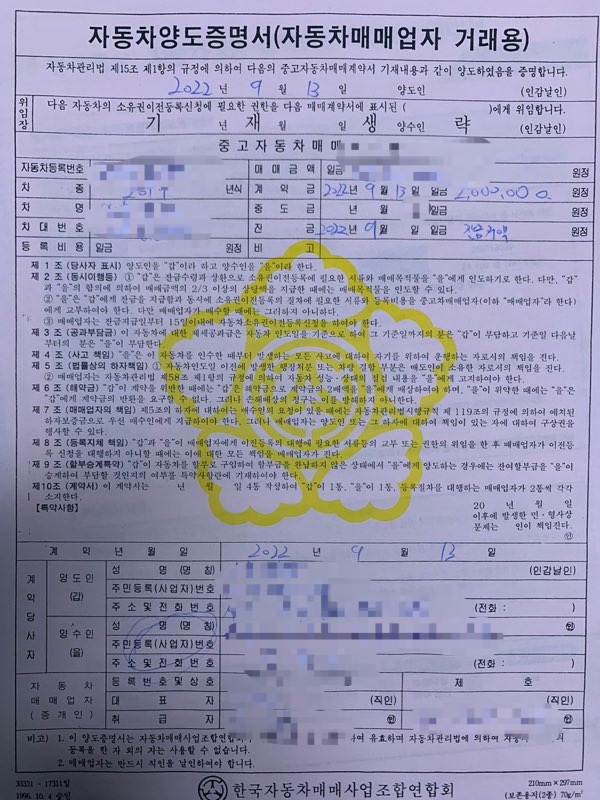 자동차양도증명서(자동차매매업자 거래용)
자동차관리법 제15조 제1항의 규정에 의하여 다음의 중고자동차매매계약서 기재내용과 같이 양도하였음을 증명합니다.
2022 년 9 월 13 일 양도인 (인감날인)
위임장 다음 자동차의 소유권이전등록신청에 필요한 권한을 다음 매매계약서에 표시된 ( )에게 위임합니다.
기 년 재 월 일 생 양수인 략 (인감날인)
중고자동차매매
자동차등록번호 매매금액 일금 원정
차 종 년식 계약금 2022년 9월 13일 일금 2,000,000 원정
차 명 중도금 일금 원정
차대번호 잔금 2022년 9월 일금 원정
등록비용 일금 원정 비고
제 1 조 (당사자 표시) 양도인을 "갑"이라 하고 양수인을 "을"이라 한다.
제 2 조 (동시이행등) ① "갑"은 잔금수령과 상환으로 소유권이전등록에 필요한 서류와 매매목적물을 "을"에게 인도하기로 한다. 다만, "갑"
과 "을"의 합의에 의하여 매매금액의 2/3 이상의 상당액을 지급한 때에는 매매목적물을 인도할 수 있다.
② "을"은 "갑"에게 잔금을 지급함과 동시에 소유권이전등록의 절차에 필요한 서류와 등록비용을 중고차매매업자(이하 "매매업자"라 한다)
에게 교부하여야 한다. 다만 매매업자가 매수할 때에는 그러하지 아니하다.
③ 매매업자는 잔금지급일부터 15일이내에 자동차소유권이전등록신청을 하여야 한다.
제 3 조 (공과부담금) 이 자동차에 대한 제세공과금은 자동차 인도일을 기준으로 하여 그 기준일까지의 분은 "갑"이 부담하고 기준일 다음날
부터의 분은 "을"이 부담한다.
제 4 조 (사고 책임) "을"은 이 자동차를 인수한 때부터 발생하는 모든 사고에 대하여 자기를 위하여 운행하는 자로서의 책임을 진다.
제 5 조 (법률상의 하자책임) ① 자동차인도일 이전에 발생한 행정처분 또는 차량 결함 부분은 매도인이 소유한 자로서의 책임을 진다.
② 매매업자는 자동차관리법 제58조 제1항의 규정에 의하여 자동차 성능·상태의 점검 내용을 "을"에게 고지하여야 한다.
제 6 조 (해약금) "갑"이 계약을 위반한 때에는 "갑"은 해약금으로 계약금의 2배액을 "을"에게 배상하여야 하며, "을"이 위약한 때에는 "을"은
"갑"에게 계약금의 반환을 요구할 수 없다. 그러나 손해배상의 청구에는 이를 방해하지 아니한다.
제 7 조 (매매업자의 책임) 제5조의 하자에 대하여는 매수인의 요청이 있을 때에는 자동차관리법시행규칙 제 119조의 규정에 의하여 예치된
하자보증금으로 우선 매수인에게 지급하여야 한다. 그러나 매매업자는 양도인 또는 그 하자에 대하여 책임이 있는 자에 대하여 구상권을
행사할 수 있다.
제 8 조 (등록지체 책임) "갑"과 "을"이 매매업자에게 이전등록의 대행에 필요한 서류등의 교부 또는 권한의 위임을 한 후 매매업자가 이전등
록 신청을 대행하지 아니할 때에는 이에 대한 모든 책임을 매매업자가 진다.
제 9 조 (할부승계특약) "갑"이 자동차를 할부로 구입하여 할부금을 완납하지 않은 상태에서 "을"에게 양도하는 경우에는 잔여할부금을 "을"이
승계하여 부담할 것인지의 여부를 특약사항란에 기재하여야 한다.
제10조 (계약서) 이 계약서는 년 월 일 4통 작성하여 "갑"이 1통, "을"이 1통, 등록절차를 대행하는 매매업자가 2통씩 각각
소지한다.
[특약사항]
20 년 월 일
이후에 발생한 민·형사상
문제는 인이 책임진다.
㊞
계 약 년 월 일 2022 년 9 월 13 일
계약당사자
양도인 (갑) 성 명 (명 칭) (인감날인)
주민등록(사업자)번호
주소 및 전화번호 (전화 : )
양수인 (을) 성 명 (명 칭) ㊞
주민등록(사업자)번호
주소 및 전화번호 (전화 : )
자동차 매매업자 (중개인) 등록번호 및 상호 제 호
대 표 자 (직인) (직인)
취 급 자 ㊞ ㊞
비고) 1. 이 양도증명서는 자동차매매사업조합연합 하여 유효하며 자동차관리법에 의하여
등록을 한 자 외의 자는 사용할 수 없습니다.
2. 매매업자는 반드시 직인을 날인하여야 합니다.
33331-17311일
1996. 10. 4 승인
한국자동차매매사업조합연합회
210mm×297mm
(보존용지(2종) 70g/m²)